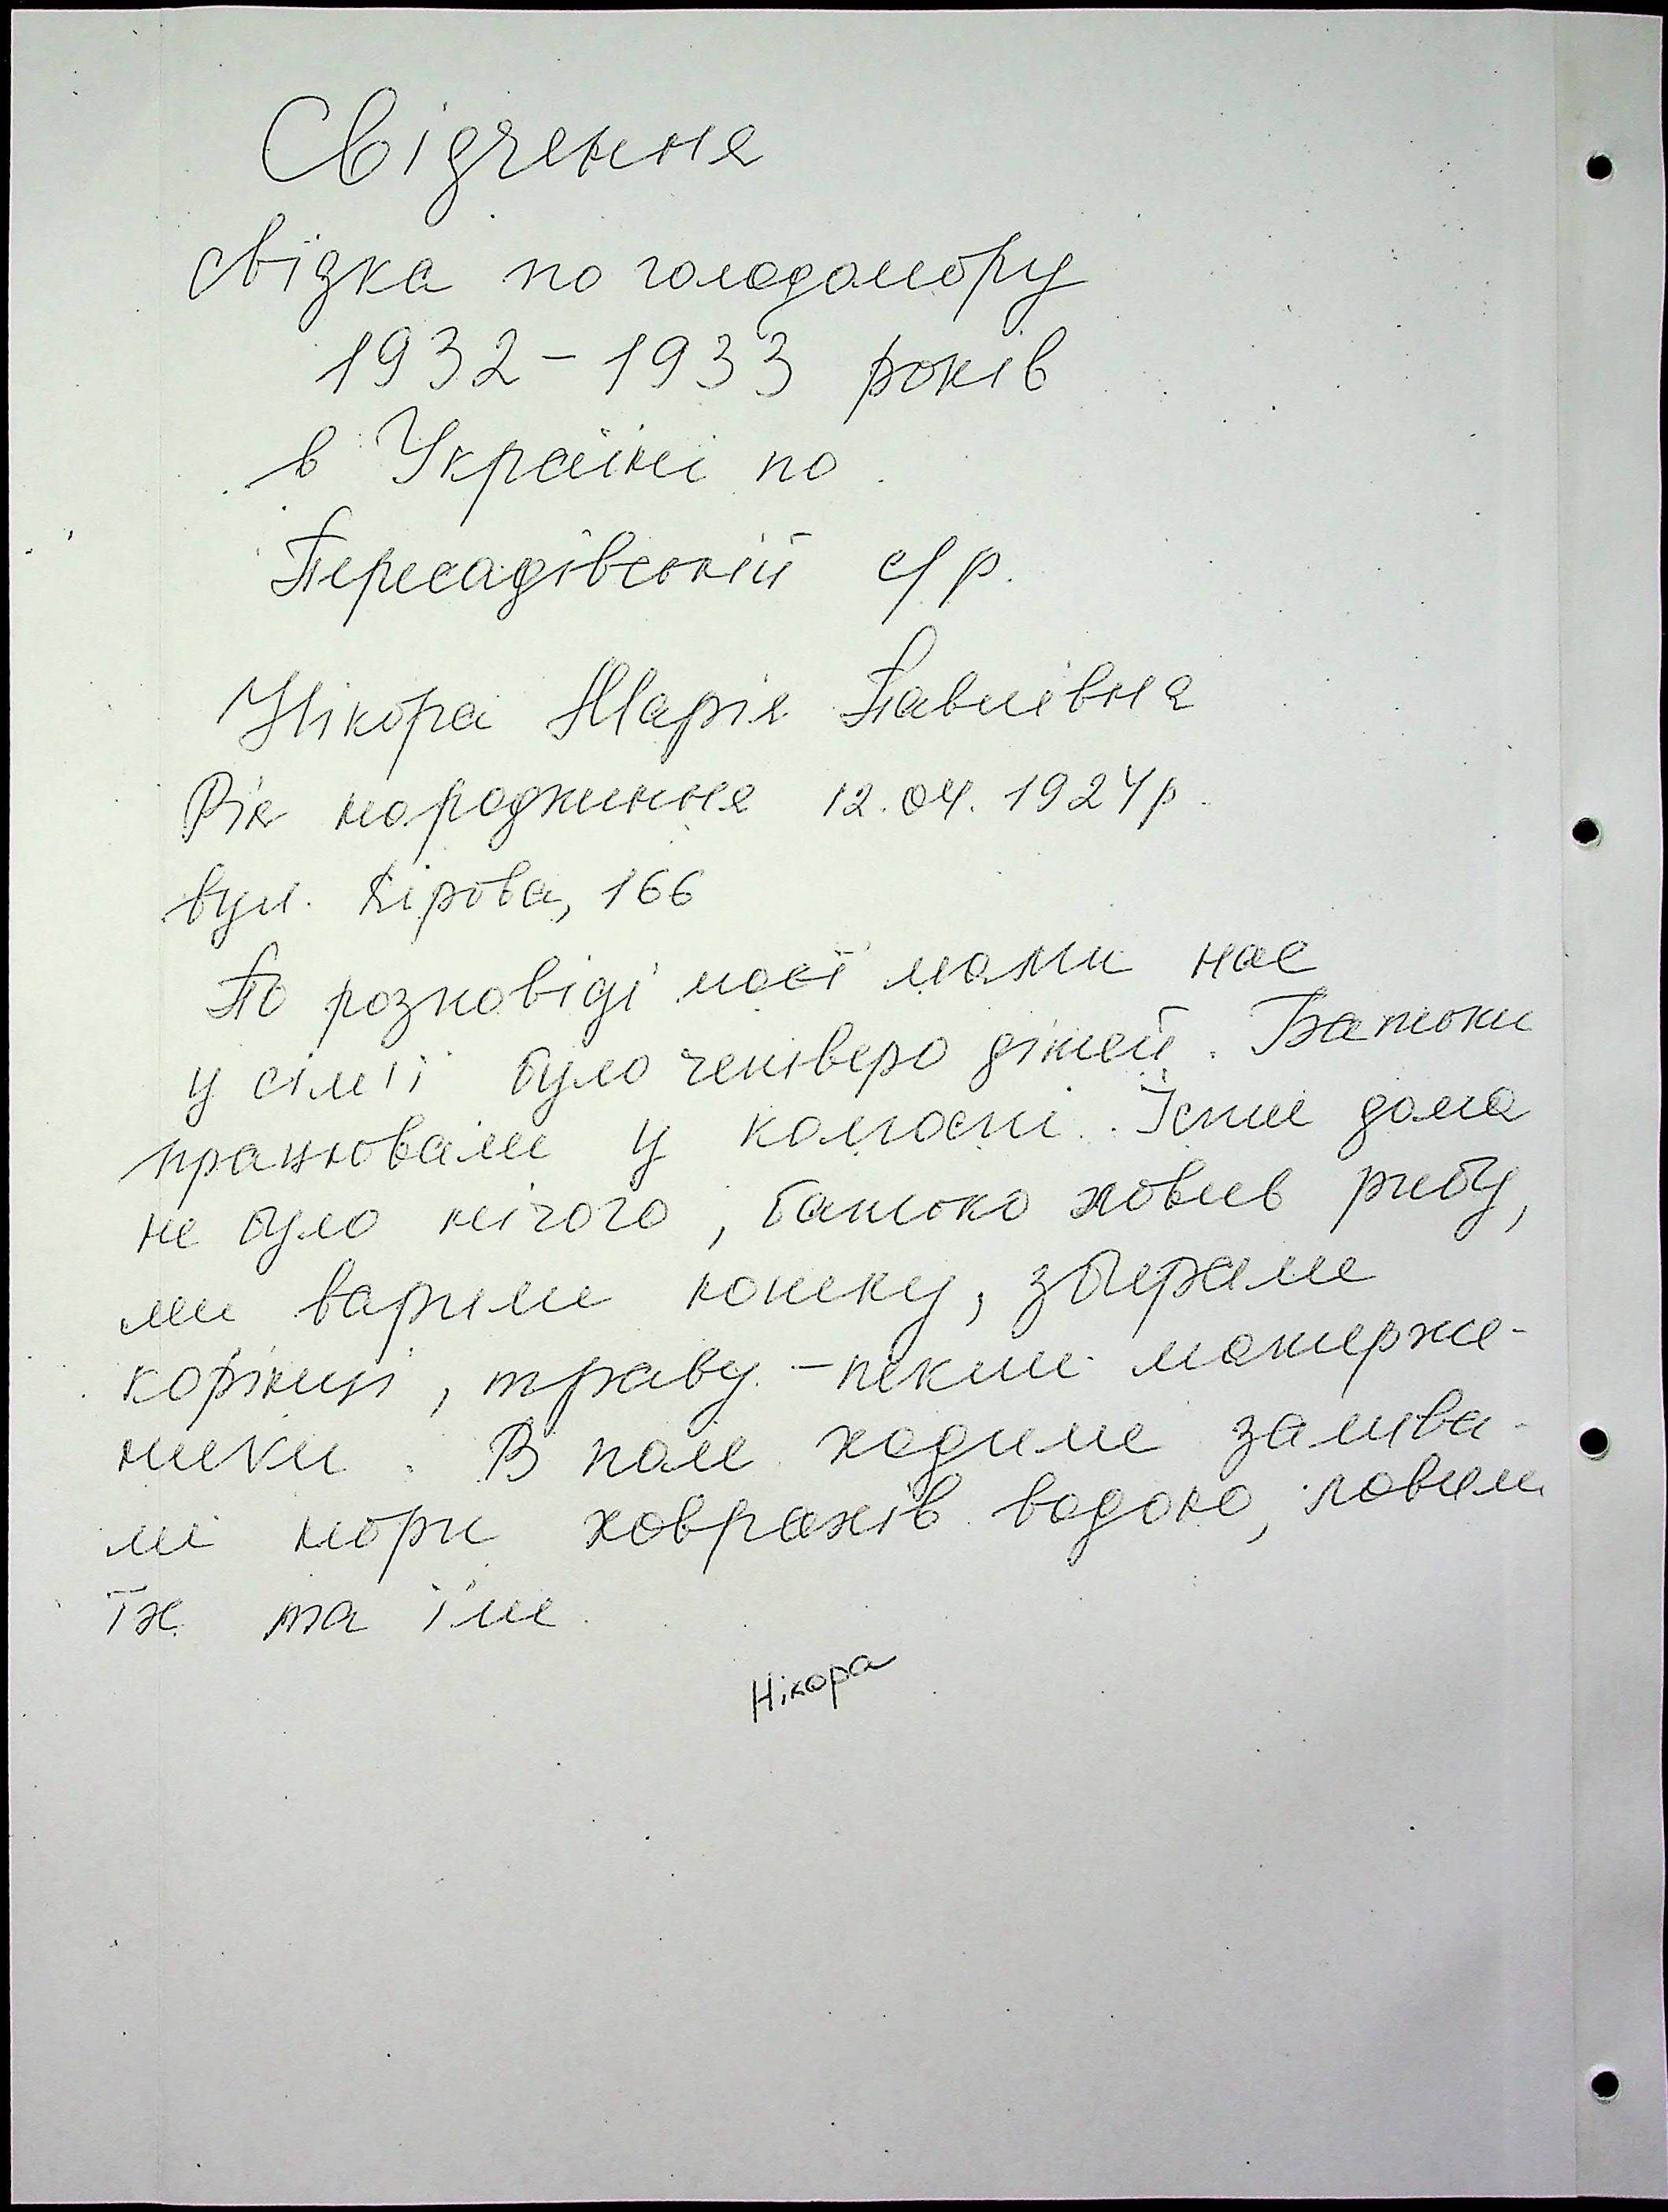 Свідчення
свідка по голодомору
1932-1933 років
в Україні по
Пересадівській с/р.
Нікора Марія Павлівна
Рік народжиння 12.04.1924р.
вул. Кірова, 166
По розповіді моєї мами нас
у сім'ї було четверо дітей. Батьки
працювали у колгоспі. Їсти дома
не було нічого, батько ловив рибу,
ми варили юшку, збирали
корінці, траву - пекли матирже-
ники. В поле ходили залива-
ли нори ховрахів водою, ловили
їх та їли.
Нікора